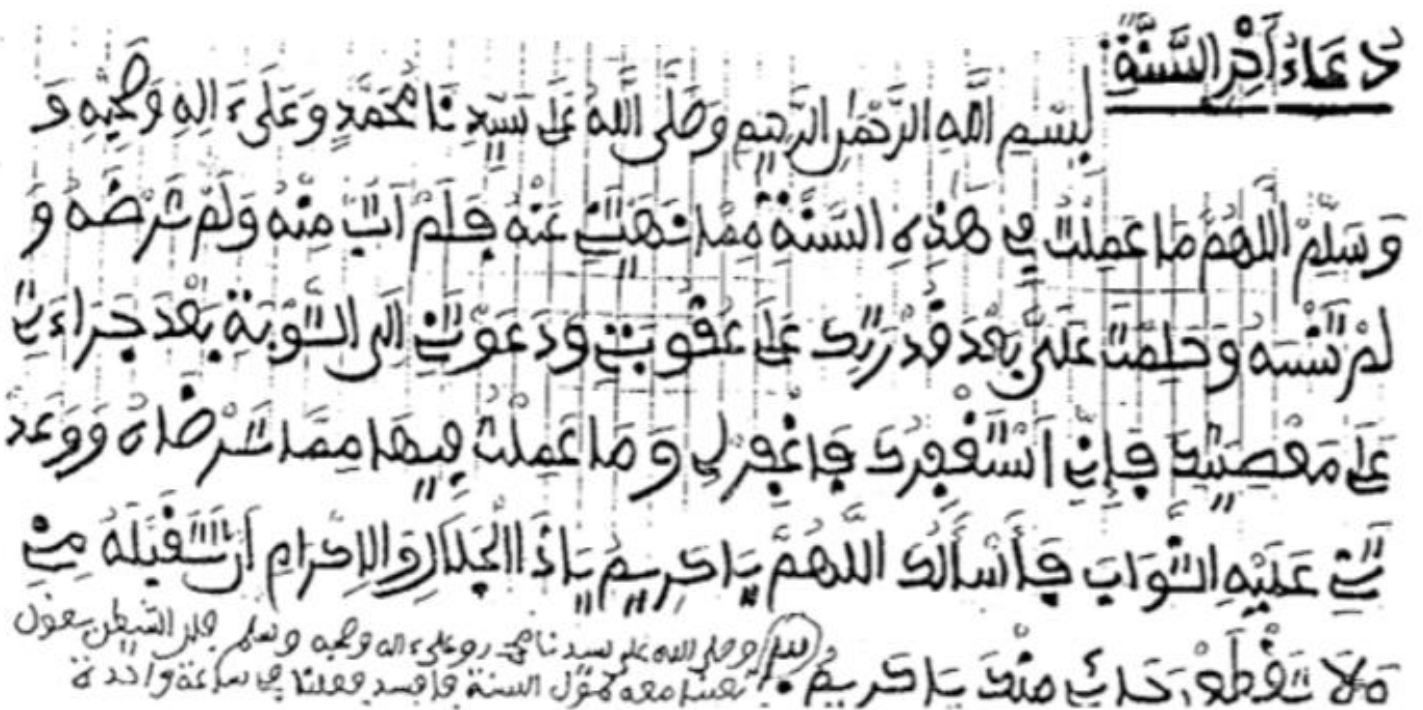 دُعَاءُ آخِرِ السَّنَةِ
بِسْمِ اللَّهِ الرَّحْمَٰنِ الرَّحِيمِ وَصَلَّى اللَّهُ عَلَى سَيِّدِنَا مُحَمَّدٍ وَعَلَىٰ ءَالِهِ وَصَحْبِهِ وَ
وَسَلِّمْ اَللَّهُمَّ مَا عَمِلْتُ فِي هَٰذِهِ السَّنَةِ مِمَّا نَهَيْتَنِي عَنْهُ فَلَمْ اَتُبْ مِنْهُ وَلَمْ تَرْضَهُ وَ
لَمْ تَنْسَهُ وَحَلِمْتَ عَلَيَّ بَعْدَ قُدْرَتِكَ عَلَى عُقُوبَتِي وَدَعَوْتَنِي اِلَى التَّوْبَةِ بَعْدَ جَرَاءَتِي
عَلَى مَعْصِيَتِكَ فَإِنِّي اَسْتَغْفِرُكَ فَاغْفِرْ لِي وَمَا عَمِلْتُ فِيهَا مِمَّا تَرْضَاهُ وَوَعَدْ
تَنِي عَلَيْهِ الثَّوَابَ فَأَسْأَلُكَ اللَّهُمَّ يَا كَرِيمُ يَا ذَا الْجَلَالِ وَالِاكْرَامِ اَنْ تَتَقَبَّلَهُ مِنِّي
وَلَا تَقْطَعْ رَجَائِي مِنْكَ يَا كَرِيمُ
وصلى الله على سيدنا محمد وعلىء اله وصحبه وسلم فإن الشيطن يقول
تعبنا معه طول السنة فافسد فعلنا في ساعة واحدة